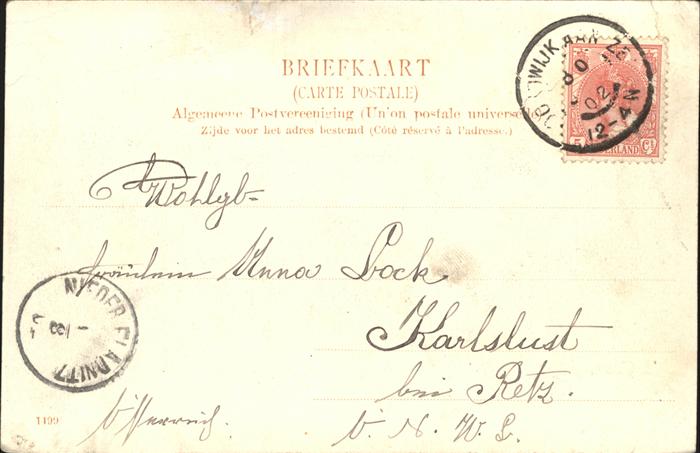 BRIEFKAART
(CARTE POSTALE)
Algemeene Postvereeniging (Union postale universelle)
Zijde voor het adres bestemd (Côté réservé à l'adresse.)
WIJK AAN ZE
02
12-4N
5 CT
Wohlgb-
Fräulein Anna Bock
Karlslust
bei Retz.
NIEDER FLADNITZ
1199
Österreich.
N. W. L.